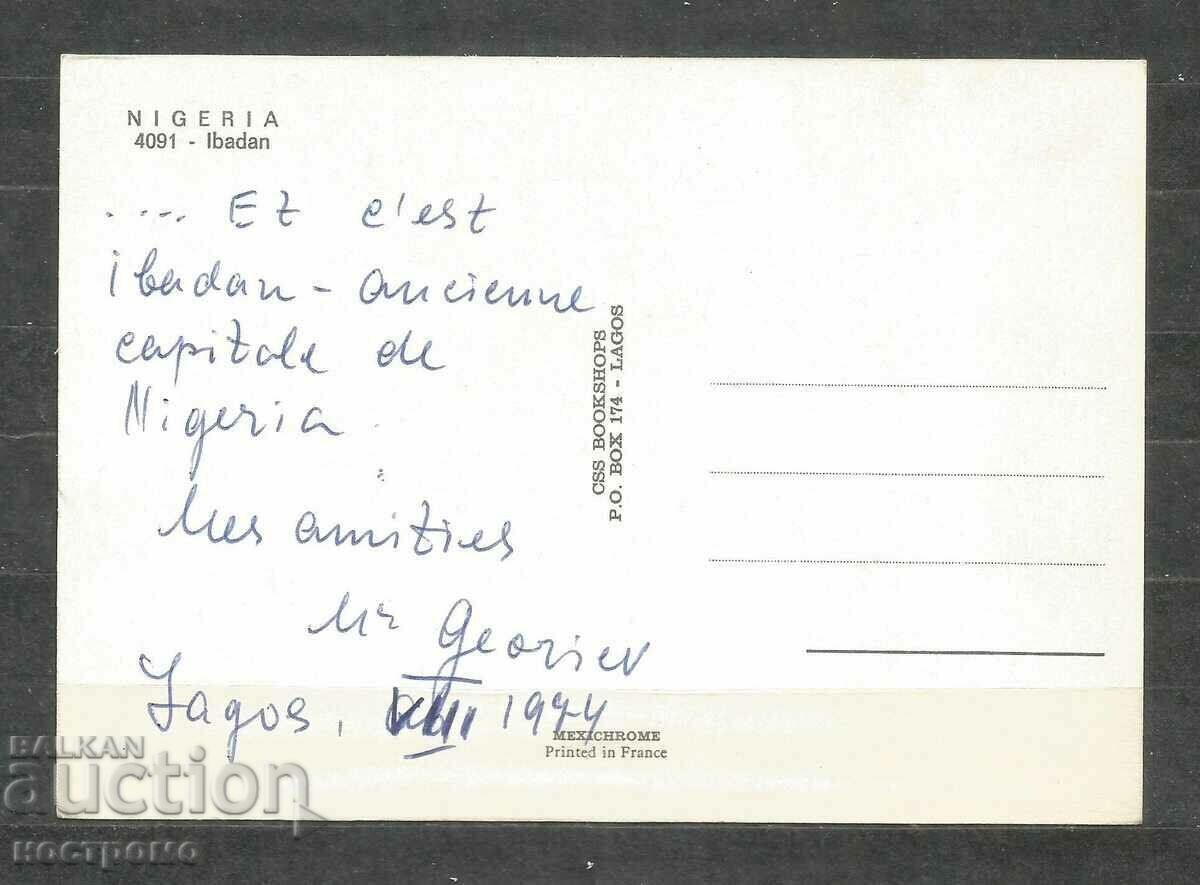 NIGERIA
4091 - Ibadan
.... Et c'est
Ibadan - ancienne
capitale de
Nigeria.
Mes amitiés
Mr Georiev
Lagos, VIII 1977
CSS BOOKSHOPS
P.O. BOX 174 - LAGOS
MEXICHROME
Printed in France
BALKAN
auction
ностромо